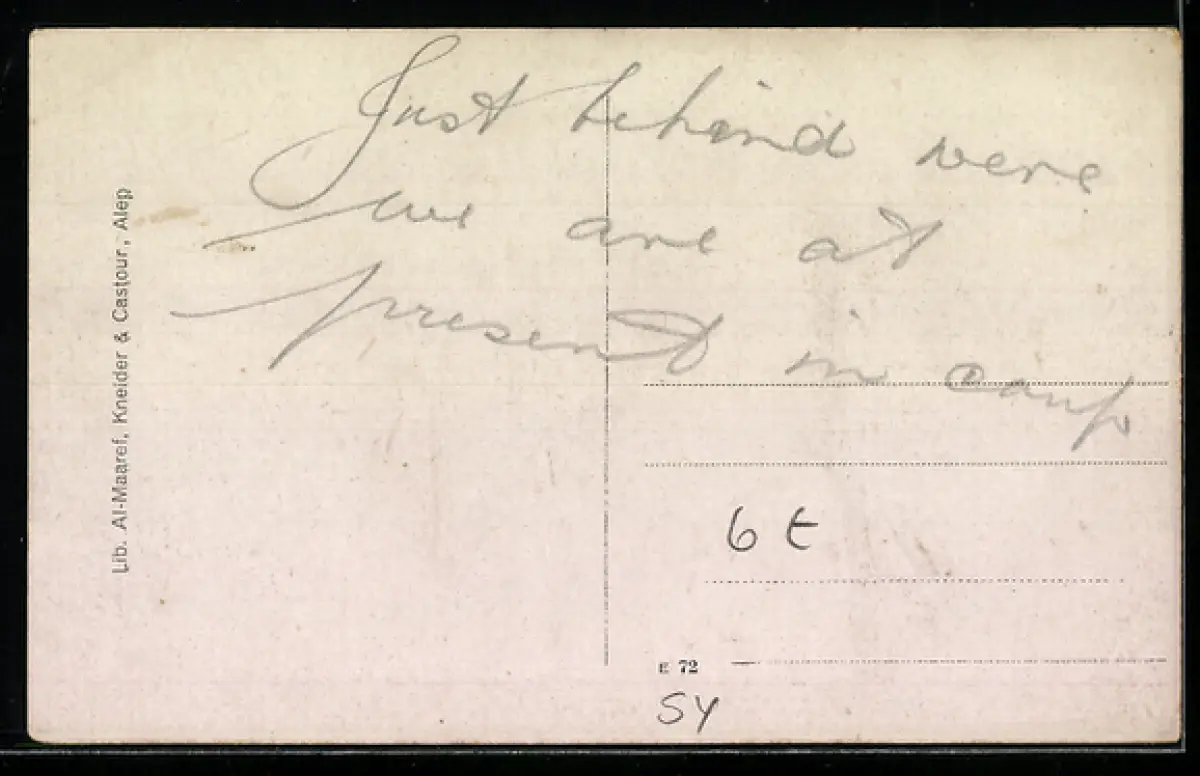 Just behind were
we are at
present in camp
Lib. Al-Maaref, Kneider & Castour, Alep
6 t
E 72
SY